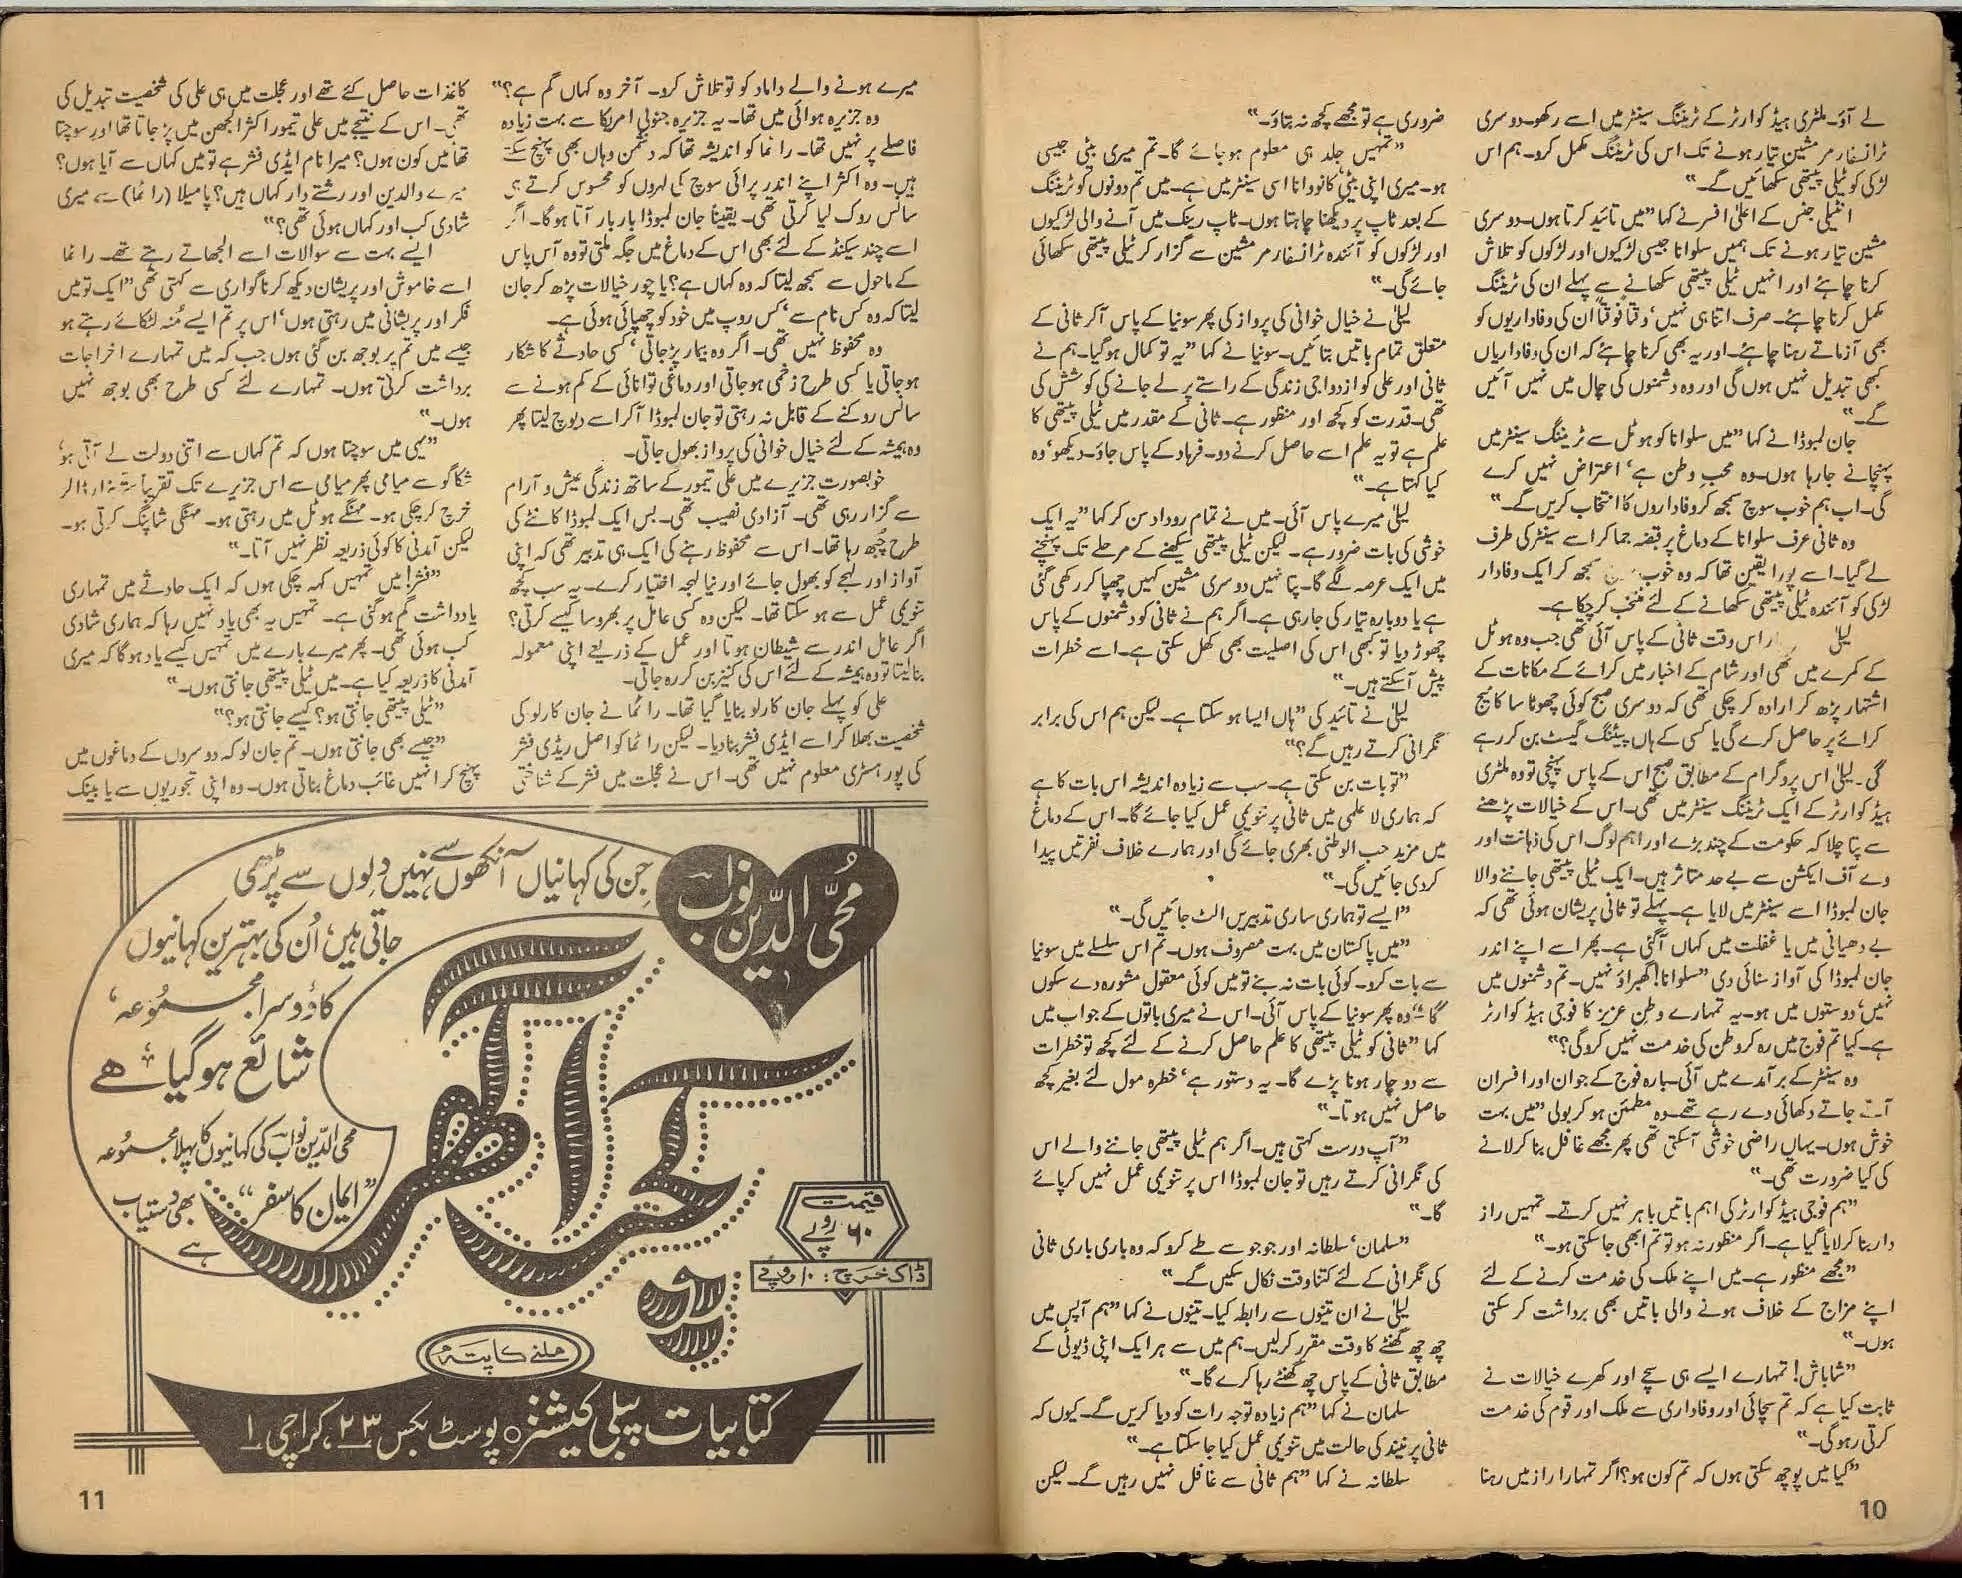 لے آؤ۔ ملٹری ہیڈ کوارٹر کے ٹریننگ سینٹر میں اسے رکھو۔ دوسری
ٹرانسفارمر مشین تیار ہونے تک اس کی ٹریننگ مکمل کرو۔ ہم اس
لڑکی کو ٹیلی پیتھی سکھائیں گے۔"
انٹیلی جنس کے اعلیٰ افسر نے کہا "میں تائید کرتا ہوں۔ دوسری
مشین تیار ہونے تک ہمیں سلوانا جیسی لڑکیوں اور لڑکوں کو تلاش
کرنا چاہئے اور انہیں ٹیلی پیتھی سکھانے سے پہلے ان کی ٹریننگ
مکمل کرنا چاہئے۔ صرف اتنا ہی نہیں' وقتاً فوقتاً ان کی وفاداریوں کو
بھی آزماتے رہنا چاہئے۔ اور یہ بھی کرنا چاہئے کہ ان کی وفاداریاں
کبھی تبدیل نہیں ہوں گی اور وہ دشمنوں کی چال میں نہیں آئیں
گے۔"
جان لمبوڈا نے کہا "میں سلوانا کو ہوٹل سے ٹریننگ سینٹر میں
پہنچانے جا رہا ہوں۔ وہ محب وطن ہے' اعتراض نہیں کرے
گی۔ اب ہم خوب سوچ سمجھ کر وفاداروں کا انتخاب کریں گے۔"
وہ ثانی عرف سلوانا کے دماغ پر قبضہ جما کر اسے سینٹر کی طرف
لے گیا۔ اسے پورا یقین تھا کہ وہ خوب سمجھ کر ایک وفادار
لڑکی کو آئندہ ٹیلی پیتھی سکھانے کے لئے منتخب کر چکا ہے۔
لیلیٰ اس وقت ثانی کے پاس آئی تھی جب وہ ہوٹل
کے کمرے میں تھی اور شام کے اخبار میں کرائے کے مکانات کے
اشتہار پڑھ کر ارادہ کر چکی تھی کہ دوسری صبح کوئی چھوٹا سا کاٹیج
کرائے پر حاصل کرے گی یا کسی کے ہاں پینگ گیسٹ بن کر رہے
گی۔ لیلیٰ اس پروگرام کے مطابق صبح اس کے پاس پہنچی تو وہ ملٹری
ہیڈ کوارٹر کے ایک ٹریننگ سینٹر میں تھی۔ اس کے خیالات پڑھنے
سے پتا چلا کہ حکومت کے چند بڑے اور اہم لوگ اس کی ذہانت اور
وے آف ایکشن سے بے حد متاثر ہیں۔ ایک ٹیلی پیتھی جاننے والا
جان لمبوڈا اسے سینٹر میں لایا ہے۔ پہلے تو ثانی پریشان ہوئی تھی کہ
بے دھیانی میں یا غفلت میں کہاں آگئی ہے۔ پھر اسے اپنے اندر
جان لمبوڈا کی آواز سنائی دی "سلوانا! گھبراؤ نہیں۔ تم دشمنوں میں
نہیں' دوستوں میں ہو۔ یہ تمہارے وطن عزیز کا فوجی ہیڈ کوارٹر
ہے۔ کیا تم فوج میں رہ کر وطن کی خدمت نہیں کرو گی؟"
وہ سینٹر کے برآمدے میں آئی۔ بارہ فوج کے جوان اور افسران
آتے جاتے دکھائی دے رہے تھے۔ وہ مطمئن ہو کر بولی "میں بہت
خوش ہوں۔ یہاں راضی خوشی آسکتی تھی پھر مجھے غافل بنا کر لانے
کی کیا ضرورت تھی۔"
"ہم فوجی ہیڈ کوارٹر کی اہم باتیں باہر نہیں کرتے۔ تمہیں راز
دار بنا کر لایا گیا ہے۔ اگر منظور نہ ہو تو تم ابھی جا سکتی ہو۔"
"مجھے منظور ہے۔ میں اپنے ملک کی خدمت کرنے کے لئے
اپنے مزاج کے خلاف ہونے والی باتیں بھی برداشت کر سکتی
ہوں۔"
"شاباش! تمہارے ایسے ہی سچے اور کھرے خیالات نے
ثابت کیا ہے کہ تم سچائی اور وفاداری سے ملک اور قوم کی خدمت
کرتی رہو گی۔"
"کیا میں پوچھ سکتی ہوں کہ تم کون ہو؟ اگر تمہارا راز میں رہنا
ضروری ہے تو مجھے کچھ نہ بتاؤ۔"
"تمہیں جلد ہی معلوم ہو جائے گا۔ تم میری بیٹی جیسی
ہو۔ میری اپنی بیٹی کانووانا اسی سینٹر میں ہے۔ میں تم دونوں کو ٹریننگ
کے بعد ٹاپ پر دیکھنا چاہتا ہوں۔ ٹاپ رینک میں آنے والی لڑکیوں
اور لڑکوں کو آئندہ ٹرانسفارمر مشین سے گزار کر ٹیلی پیتھی سکھائی
جائے گی۔"
لیلیٰ نے خیال خوانی کی پرواز کی پھر سونیا کے پاس آکر ثانی کے
متعلق تمام باتیں بتائیں۔ سونیا نے کہا "یہ تو کمال ہوگیا۔ ہم نے
ثانی اور علی کو ازدواجی زندگی کے راستے پر لے جانے کی کوشش کی
تھی۔ قدرت کو کچھ اور منظور ہے۔ ثانی کے مقدر میں ٹیلی پیتھی کا
علم ہے تو یہ علم اسے حاصل کرنے دو۔ فرہاد کے پاس جاؤ۔ دیکھو' وہ
کیا کہتا ہے۔"
لیلیٰ میرے پاس آئی۔ میں نے تمام روداد سن کر کہا "یہ ایک
خوشی کی بات ضرور ہے۔ لیکن ٹیلی پیتھی سیکھنے کے مرحلے تک پہنچنے
میں ایک عرصہ لگے گا۔ پتا نہیں دوسری مشین کہیں چھپا کر رکھی گئی
ہے یا دوبارہ تیار کی جارہی ہے۔ اگر ہم نے ثانی کو دشمنوں کے پاس
چھوڑ دیا تو کبھی اس کی اصلیت بھی کھل سکتی ہے۔ اسے خطرات
پیش آسکتے ہیں۔"
لیلیٰ نے تائید کی "ہاں ایسا ہو سکتا ہے۔ لیکن ہم اس کی برابر
نگرانی کرتے رہیں گے؟"
"تو بات بن سکتی ہے۔ سب سے زیادہ اندیشہ اس بات کا ہے
کہ ہماری لاعلمی میں ثانی پر تنویمی عمل کیا جائے گا۔ اس کے دماغ
میں مزید حب الوطنی بھری جائے گی اور ہمارے خلاف نفرتیں پیدا
کردی جائیں گی۔"
"ایسے تو ہماری ساری تدبیریں الٹ جائیں گی۔"
"میں پاکستان میں بہت مصروف ہوں۔ تم اس سلسلے میں سونیا
سے بات کرو۔ کوئی بات نہ بنے تو میں کوئی معقول مشورہ دے سکوں
گا۔" وہ پھر سونیا کے پاس آئی۔ اس نے میری باتوں کے جواب میں
کہا "ثانی کو ٹیلی پیتھی کا علم حاصل کرنے کے لئے کچھ تو خطرات
سے دو چار ہونا پڑے گا۔ یہ دستور ہے' خطرہ مول لئے بغیر کچھ
حاصل نہیں ہوتا۔"
"آپ درست کہتی ہیں۔ اگر ہم ٹیلی پیتھی جاننے والے اس
کی نگرانی کرتے رہیں تو جان لمبوڈا اس پر تنویمی عمل نہیں کر پائے
گا۔"
"سلمان' سلطانہ اور جوجو سے طے کرو کہ وہ باری باری ثانی
کی نگرانی کے لئے کتنا وقت نکال سکیں گے۔"
لیلیٰ نے ان تینوں سے رابطہ کیا۔ تینوں نے کہا "ہم آپس میں
چھ چھ گھنٹے کا وقت مقرر کر لیں۔ ہم میں سے ہر ایک اپنی ڈیوٹی کے
مطابق ثانی کے پاس چھ گھنٹے رہا کرے گا۔"
سلمان نے کہا "ہم زیادہ توجہ رات کو دیا کریں گے۔ کیوں کہ
ثانی پر نیند کی حالت میں تنویمی عمل کیا جا سکتا ہے۔"
سلطانہ نے کہا "ہم ثانی سے غافل نہیں رہیں گے۔ لیکن
10
میرے ہونے والے داماد کو تو تلاش کرو۔ آخر وہ کہاں گم ہے؟"
وہ جزیرہ ہوائی میں تھا۔ یہ جزیرہ جنوبی امریکا سے بہت زیادہ
فاصلے پر نہیں تھا۔ رانما کو اندیشہ تھا کہ دشمن وہاں بھی پہنچ سکتے
ہیں۔ وہ اکثر اپنے اندر پرائی سوچ کی لہروں کو محسوس کرتے ہی
سانس روک لیا کرتی تھی۔ یقیناً جان لمبوڈا بار بار آتا ہوگا۔ اگر
اسے چند سیکنڈ کے لئے بھی اس کے دماغ میں جگہ ملتی تو وہ آس پاس
کے ماحول سے سمجھ لیتا کہ وہ کہاں ہے؟ یا چور خیالات پڑھ کر جان
لیتا کہ وہ کس نام سے' کس روپ میں خود کو چھپائی ہوئی ہے۔
وہ محفوظ نہیں تھی۔ اگر وہ بیمار پڑ جاتی' کسی حادثے کا شکار
ہو جاتی یا کسی طرح زخمی ہو جاتی اور دماغی توانائی کے کم ہونے سے
سانس روکنے کے قابل نہ رہتی تو جان لمبوڈا آکر اسے دبوچ لیتا پھر
وہ ہمیشہ کے لئے خیال خوانی کی پرواز بھول جاتی۔
خوبصورت جزیرے میں علی تیمور کے ساتھ زندگی عیش و آرام
سے گزار رہی تھی۔ آزادی نصیب تھی۔ بس ایک لمبوڈا کانٹے کی
طرح چبھ رہا تھا۔ اس سے محفوظ رہنے کی ایک ہی تدبیر تھی کہ اپنی
آواز اور لہجے کو بھول جائے اور نیا لہجہ اختیار کرے۔ یہ سب کچھ
تنویمی عمل سے ہو سکتا تھا۔ لیکن وہ کسی عامل پر بھروسا کیسے کرتی؟
اگر عامل اندر سے شیطان ہوتا اور عمل کے ذریعے اپنی معمولہ
بنا لیتا تو وہ ہمیشہ کے لئے اس کی کنیز بن کر رہ جاتی۔
علی کو پہلے جان کارلو بنایا گیا تھا۔ رانما نے جان کارلو کی
شخصیت بھلا کر اسے ایڈی فشر بنادیا۔ لیکن رانما کو اصل ریڈی فشر
کی پور ہسٹری معلوم نہیں تھی۔ اس نے عجلت میں فشر کے شناختی
کاغذات حاصل کئے تھے اور عجلت میں ہی علی کی شخصیت تبدیل کی
تھی۔ اس کے نتیجے میں علی تیمور اکثر الجھن میں پڑ جاتا تھا اور سوچتا
تھا میں کون ہوں؟ میرا نام ایڈی فشر ہے تو میں کہاں سے آیا ہوں؟
میرے والدین اور رشتے دار کہاں ہیں؟ پامیلا (رانما) سے میری
شادی کب اور کہاں ہوئی تھی؟"
ایسے بہت سے سوالات اسے الجھاتے رہتے تھے۔ رانما
اسے خاموش اور پریشان دیکھ کر ناگواری سے کہتی تھی "ایک تو میں
فکر اور پریشانی میں رہتی ہوں' اس پر تم ایسے مُنہ لٹکائے رہتے ہو
جیسے میں تم پر بوجھ بن گئی ہوں جب کہ میں تمہارے اخراجات
برداشت کرتی ہوں۔ تمہارے لئے کسی طرح بھی بوجھ نہیں
ہوں۔"
"یہی میں سوچتا ہوں کہ تم کہاں سے اتنی دولت لے آتی ہو'
شکاگو سے میامی پھر میامی سے اس جزیرے تک تقریباً ہزار ڈالر
خرچ کر چکی ہو۔ مہنگے ہوٹل میں رہتی ہو۔ مہنگی شاپنگ کرتی ہو۔
لیکن آمدنی کا کوئی ذریعہ نظر نہیں آتا۔"
"فشر! میں تمہیں کہہ چکی ہوں کہ ایک حادثے میں تمہاری
یادداشت گم ہو گئی ہے۔ تمہیں یہ بھی یاد نہیں رہا کہ ہماری شادی
کب ہوئی تھی۔ پھر میرے بارے میں تمہیں کیسے یاد ہوگا کہ میری
آمدنی کا ذریعہ کیا ہے۔ میں ٹیلی پیتھی جانتی ہوں۔"
"ٹیلی پیتھی جانتی ہو؟ کیسے جانتی ہو؟"
"جیسے بھی جانتی ہوں۔ تم جان لو کہ دوسروں کے دماغوں میں
پہنچ کر انہیں غائب دماغ بناتی ہوں۔ وہ اپنی تجوریوں سے یا بینک
محی الدّین نواب
جن کی کہانیاں آنکھوں سے نہیں دلوں سے پڑھی
جاتی ہیں، اُن کی بہترین کہانیوں
کا دُوسرا مجمُوعہ،
شائع ہوگیا ہے
کچرا گھر
محی الدّین نواب کی کہانیوں کا پہلا مجمُوعہ
"ایمان کا سفر"
بھی دستیاب
ہے
قیمت
۶۰ روپے
ڈاک خرچ: ۱۰ روپے
ملنے کا پتہ
کتابیات پبلی کیشنز ○ پوسٹ بکس ۲۳، کراچی ۱
11